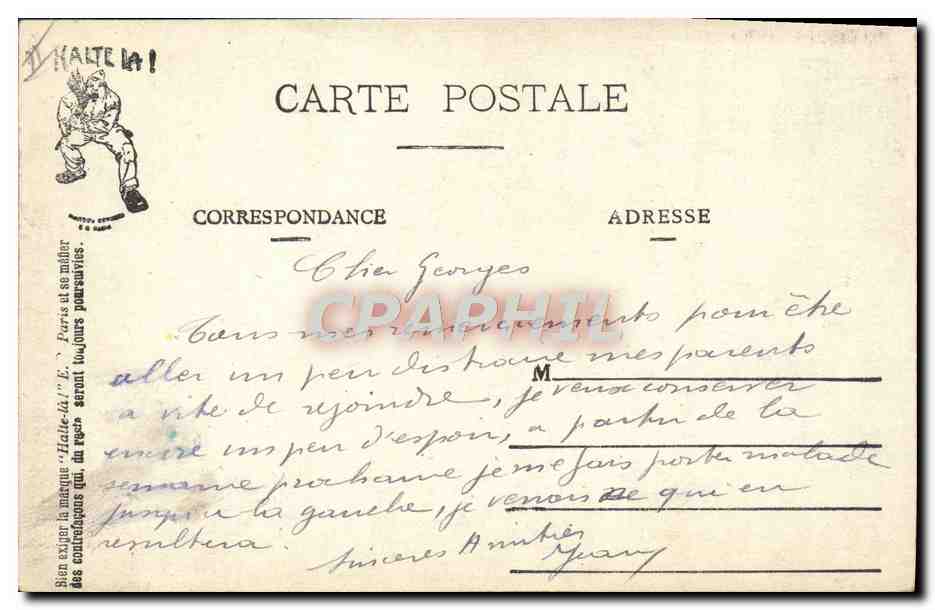 HALTE LA!
CARTE POSTALE
CORRESPONDANCE
ADRESSE
Bien exiger la marque "Halte-là!" E. Paris et se méfier
des contrefaçons qui, du reste seront toujours poursuivies.
M
CPAPHIL
Cher Georges
Tous mes remerciements pour être
aller un peu distraire mes parents
a vite de rejoindre, je veux conserver
encore un peu d'espoir, a partir de la
semaine prochaine je me fais porter malade
jusqu'a la gauche, je verrais ce qui en
resultera.
Sincères Amitiés